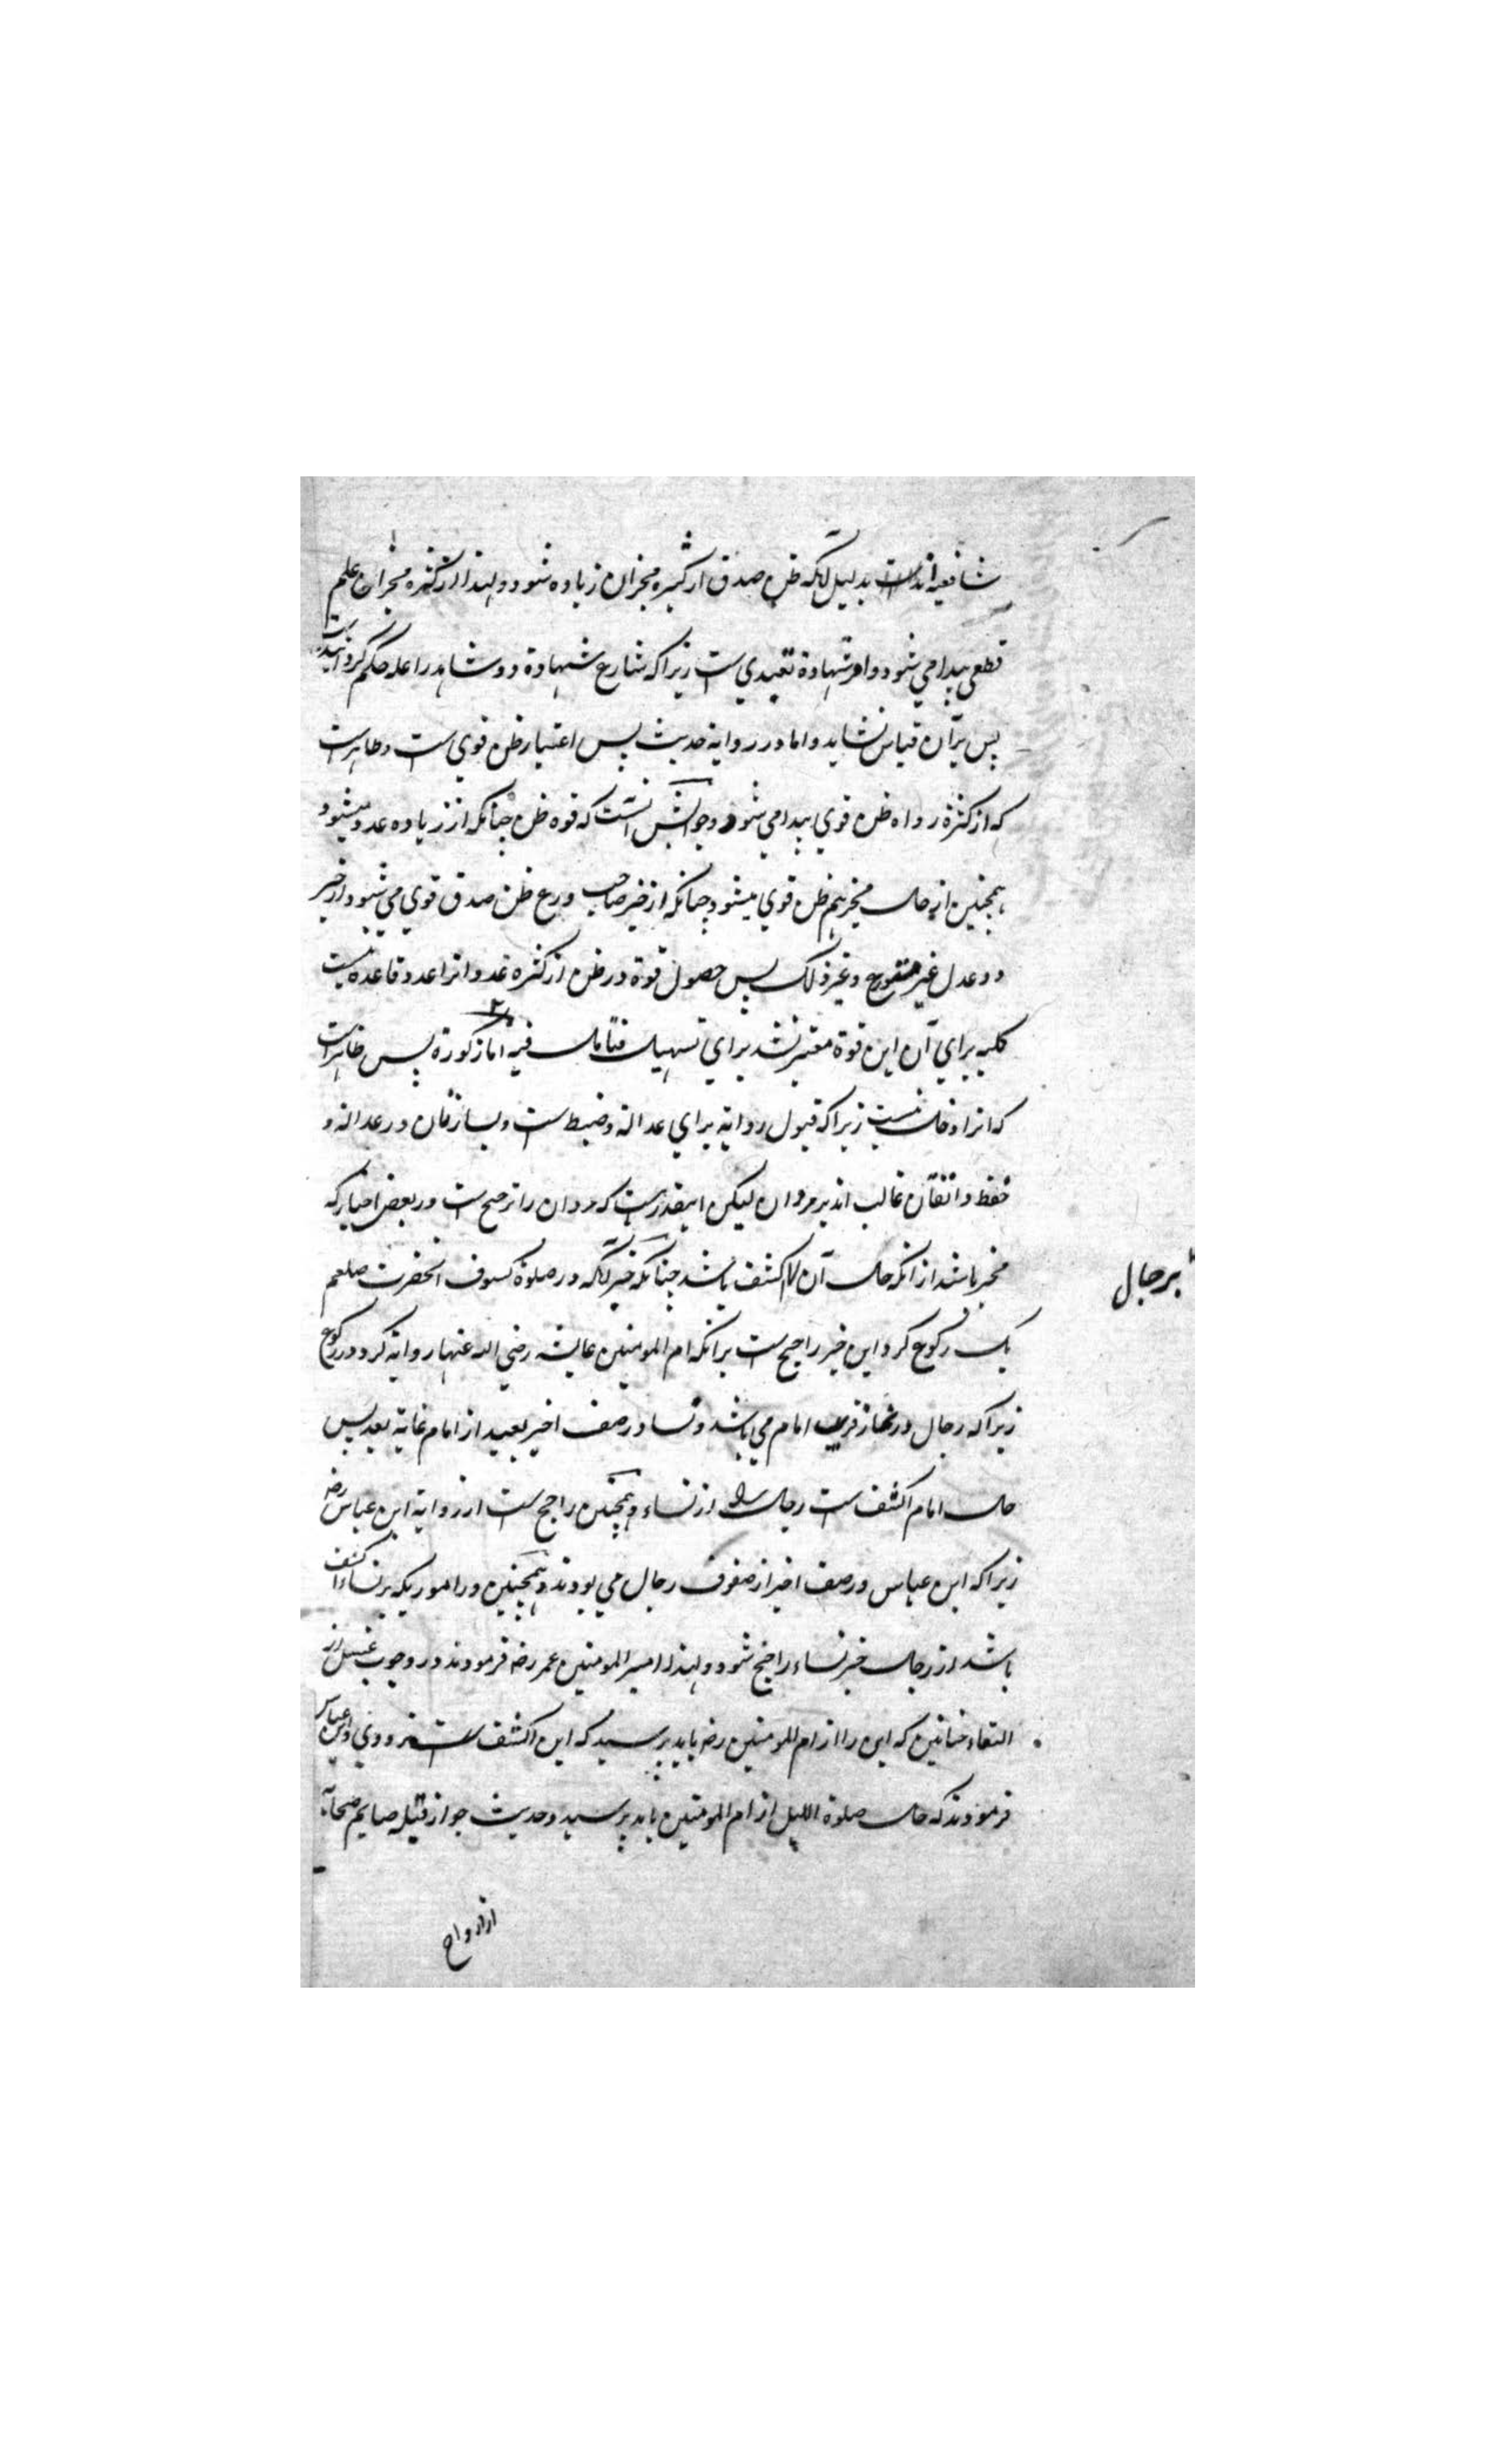 شافعیه اند بدلیل آنکه ظن صدق از کثرة مخبران زیاده شود ولهذا از کثرة مخبران علم
قطعی پیدا می شود و امر شهادة تعبدی ست زیرا که شارع شهادة دو شاهد را علة حکم گردانیده است
پس بر آن قیاس نشاید و اما در روایة حدیث پس اعتبار ظن قوی ست و ظاهر است
که از کثرة رواه ظن قوی پیدا می شود و جوابش آنست که قوه ظن چنانکه از زیاده عدد میشود
همچنین از حال مخبر هم ظن قوی میشود چنانکه از خبر صاحب ورع ظن صدق قوی می شود از خبر
دو عدل غیر و غیر ذلک پس حصول قوة در ظن از کثره عدد و انرا عدد قاعده نیست
کلیه برای آن این قوة معتبر نشد برای تسهیل فتامل فیه اما ذکورة پس ظاهر است
که انرا دخل نیست زیرا که قبول روایة برای عدالة و ضبط ست و بسا زنان در عدالة و
حفظ و اتقان غالب اند بر مردان لیکن اینقدر هست که مردان را ترجیح ست در بعض اخبار که
مخبر باشد از انکه حال آن اکشف باشد چنانکه خبر آنکه در صلوة کسوف آنحضرت صلعم
یک رکوع کرد این خبر راجح ست بر آنکه ام المومنین عایشه رضی الله عنها روایة کرد دو رکوع
زیرا که رجال در نماز قریب امام می باشد و نسا در صف اخیر بعید از امام غایة بعد پس
حال امام اکشف ست رجال را از نساء و همچنین راجح ست از روایة ابن عباس رضه
زیرا که ابن عباس در صف اخیر از صفوف رجال می بودند و همچنین در امور یکه بر نساء اکشف
باشد از رجال خبر نساء راجح شود ولهذا امیر المومنین عمر رضه فرمودند در وجوب غسل از
التقاء ختانین که این را از ام المومنین رضه باید پرسید که این اکشف ست و ابن عباس
فرمودند که حال صلوة اللیل از ام المومنین باید پرسید و حدیث جواز قبله صایم صحابه
از ازواج
بر جال